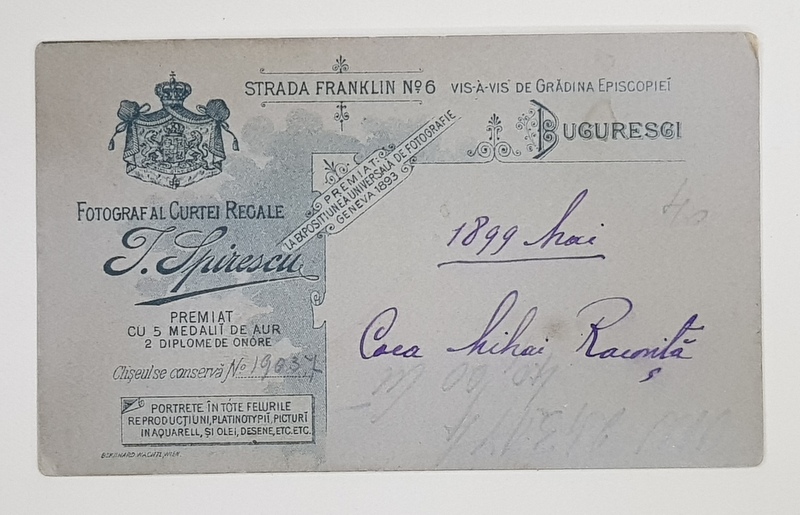 STRADA FRANKLIN No 6 VIS-À-VIS DE GRĂDINA EPISCOPIEĬ
BUCURESCI
PREMIAT
LA EXPOSITIUNEA UNIVERSALĂ DE FOTOGRAFIE
GENEVA 1893
FOTOGRAF AL CURTEI REGALE
J. Spirescu
PREMIAT
CU 5 MEDALII DE AUR
2 DIPLOME DE ONÓRE
Clișeul se conservă No 19037
PORTRETE ÎN TÓTE FELURILE
REPRODUCȚIUNI, PLATINOTYPII, PICTURI
IN AQUARELL, ȘI OLEI, DESENE, ETC. ETC.
BERNHARD WACHTL, WIEN
40
1899 Mai
Coca Mihai Racoviță